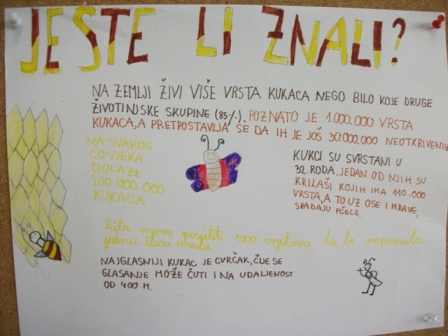 JESTE LI ZNALI?
NA ZEMLJI ŽIVI VIŠE VRSTA KUKACA NEGO BILO KOJE DRUGE
ŽIVOTINJSKE SKUPINE (85%). POZNATO JE 1.000.000 VRSTA
KUKACA, A PRETPOSTAVLJA SE DA IH JE JOŠ 30.000.000 NEOTKRIVENIH
NA SVAKOG
ČOVJEKA
DOLAZI
200.000.000
KUKACA.
KUKCI SU SVRSTANI U
32. RODA. JEDAN OD NJIH SU
KRILAŠI KOJIH IMA 110.000
VRSTA, A TO UZ OSE I MRAVE,
SPADAJU PČELE.
mora posjetiti 1000 cvjetova da bi napravila
jednu žlicu meda.
NAJGLASNIJI KUKAC JE CVRČAK, ČIJE SE
GLASANJE MOŽE ČUTI I NA UDALJENOST
OD 400 M.